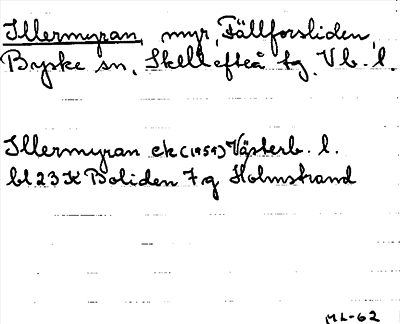 Illermyran, myr, Fällforsliden,
Byske sn, Skellefteå tg. Vb. l.
Illermyran ek (1959) Västerb. l.
bl 23 K Boliden 7 g Holmstrand
ML-62